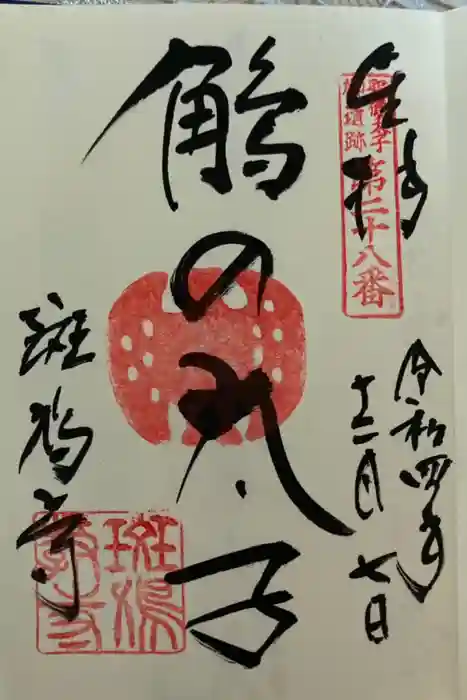 奉拝
聖徳太子
御遺跡
第二十八番
令和四年
十二月七日
鵤の太子
斑鳩寺
斑鳩